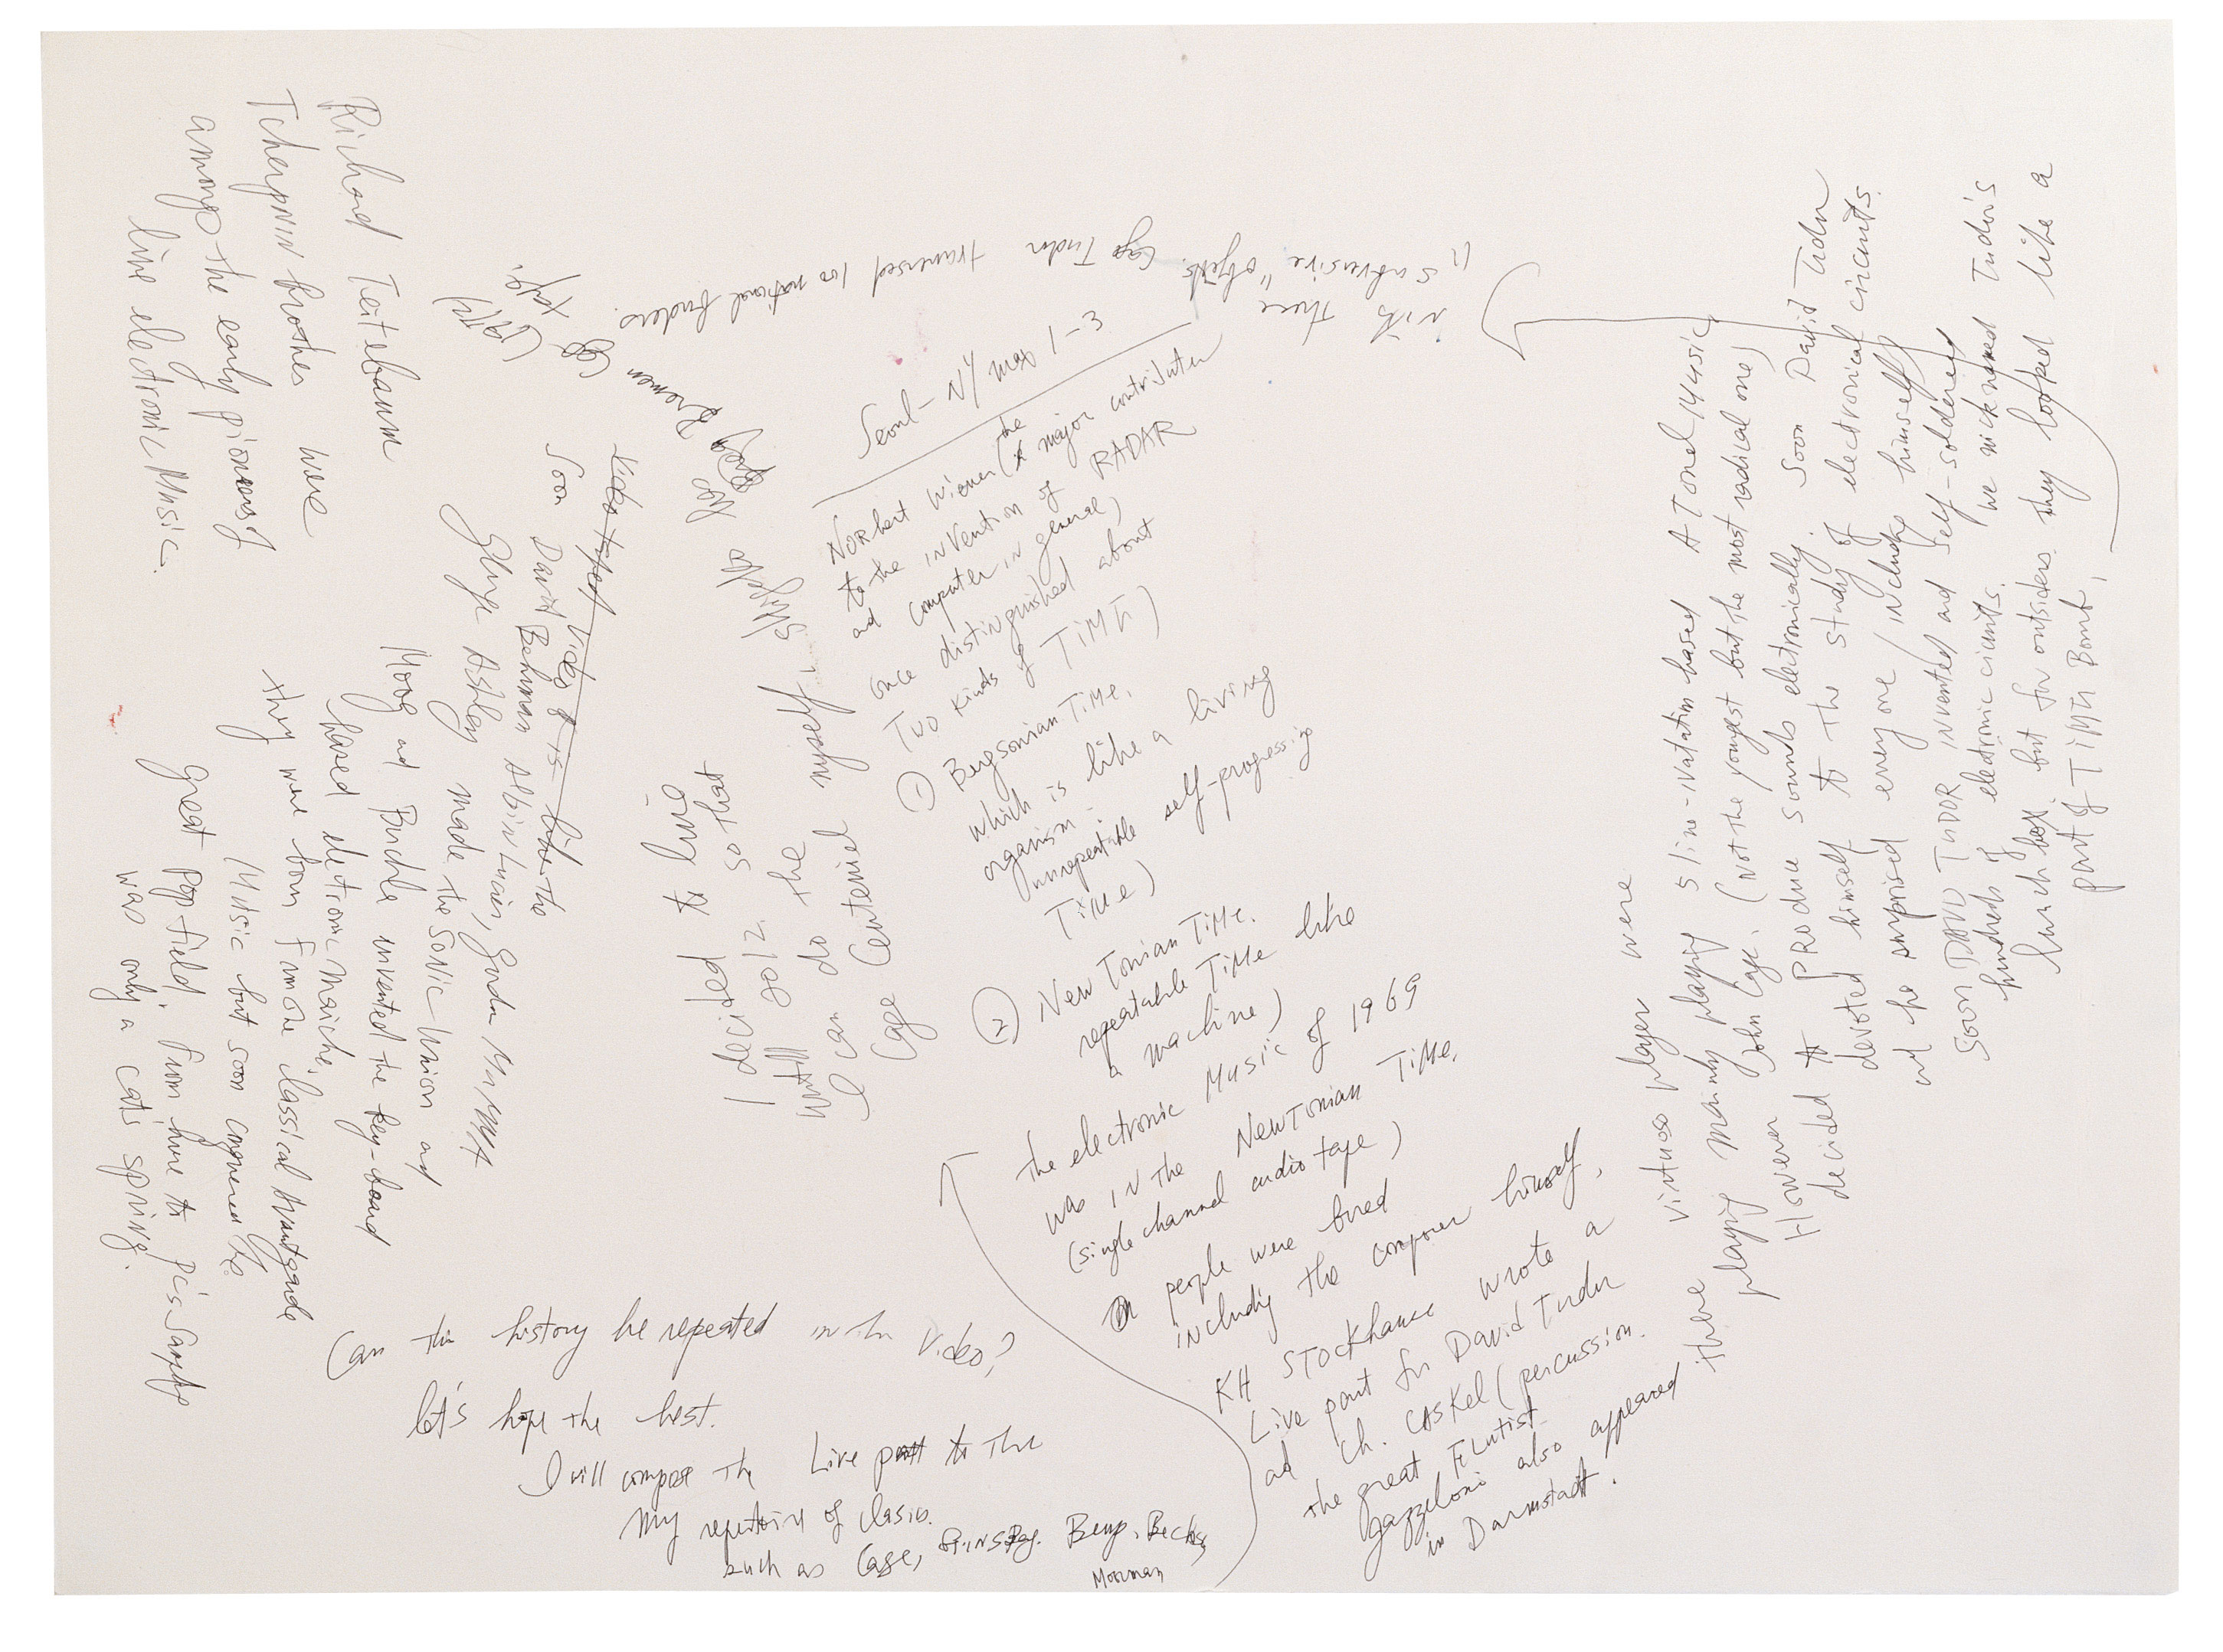 Seoul - NY max 1-3
Norbert Wiener (the major contributer
to the invention of RADAR
ad computer in general)
once distinguished about
Two kinds of TIME)
① Bergsonian Time.
which is like a living
organism -
unrepeatable self-progressing
Time)
② Newtonian Time.
repeatable Time like
a machine)
The electronic Music of 1969
was in the Newtonian Time.
(single channel audio tape)
people were bored
including the composer himself.
KH Stockhause wrote a
Live part for David Tudor
ad Ch. Caskel (percussion.
the great Flutist
Gazzeloni also appeared
in Darmstadt.
there virtuoso player were
playing mainly playing 5 line-notation based ATonel Music
John Cage. (Not the yongest but the most radical one)
However
decided to PRoduce sounds electronically. Soon David Tudor
devoted himself to the study of electronical circuits.
ad he surprised every one including himself
Soon DAVID TUDOR invented and self-soldered
hundreds of electronic cicuits. we nicknamed Tudor's
lunch box. but for outsiders they looked like a
part of TIME Bomb,
with these
"subversive" objets. Cage Tudor traversed 100 national borders.
Soon David Behrman Albin Lucier, Gordon Mumma
Ashley made the Sonic Union ad
Moog ad Buchla invented the key-board
based electronic maiche.
they were born from one classical Avantgarde
Music but soon conquered the
great Pop-field. From here to
was only a cat's spring.
Richard Teitebaum
Tcherpnin brothes were
among the early pioneers of
live electronic Music.
Can this history be repeated in the Video?
let's hope the best.
I will compose the Live part to the
my repertoire of classics.
such as Cage, Beuys, Becks,
Moorman
I decided to live
until 2012. so that
I can do the
Cage Centenniel myself.